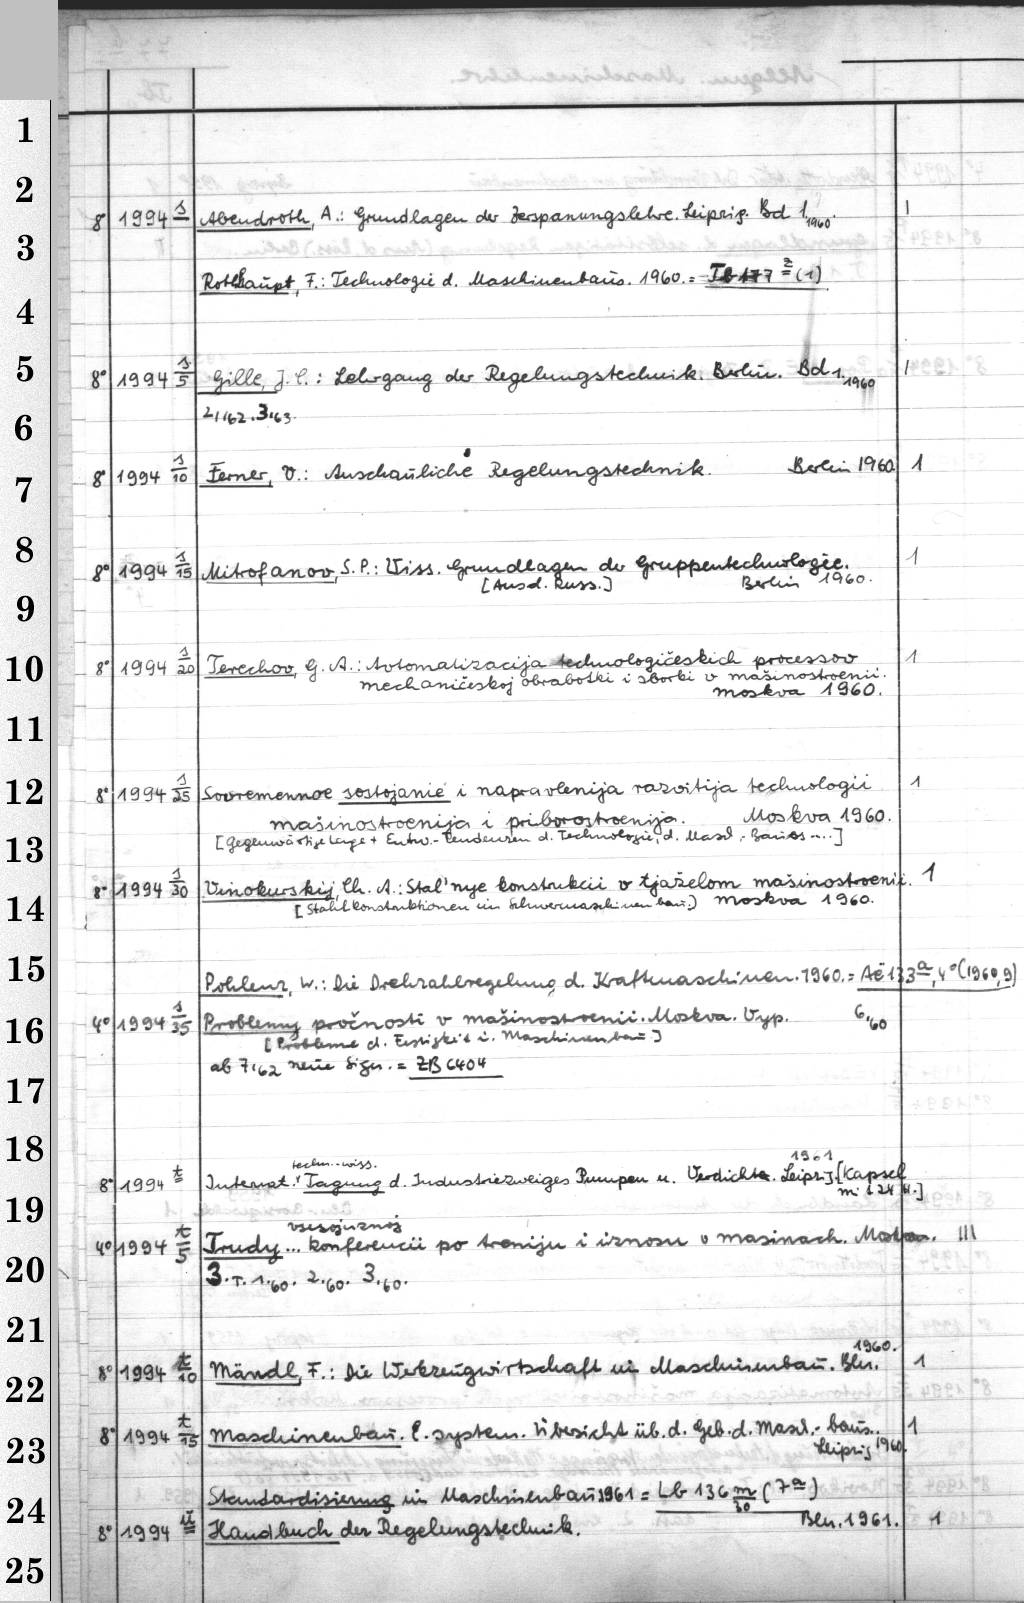 1
2
8° 1994 s Abendroth, A.: Grundlagen der Zerspanungslehre. Leipzig. Bd 1. 1960. 1
3
Rothhaupt, F.: Technologie d. Maschinenbaus. 1960. = Tb 177 z (1)
4
5
8° 1994 s/5 Gille, J. C.: Lehrgang der Regelungstechnik. Berlin. Bd 1. 1960 1
6
2,'62. 3,'63.
8° 1994 s/10 Ferner, V.: Anschauliche Regelungstechnik. Berlin 1960. 1
7
8
8° 1994 s/15 Mitrofanov, S. P.: Wiss. Grundlagen der Gruppentechnologie. 1
[Aus d. Russ.] Berlin 1960.
9
10
8° 1994 s/20 Terechov, G. A.: Avtomatizacija technologičeskich processov 1
mechaničeskoj obrabotki i sborki v mašinostroenii.
Moskva 1960.
11
12
8° 1994 s/25 Sovremennoe sostojanie i napravlenija razvitija technologii 1
mašinostroenija i priborostroenija. Moskva 1960.
13
[Gegenwärtige Lage + Entw.-Tendenzen d. Technologie d. Masch.-Baues ...]
8° 1994 s/30 Vinokurskij, Ch. A.: Stal'nye konstrukcii v tjaželom mašinostroenii. 1
14
[Stahlkonstruktionen im Schwermaschinenbau.] Moskva 1960.
15
Pohlenz, W.: Die Drehzahlregelung d. Kraftmaschinen. 1960. = Aē 133 a, 4° (1960, 9)
16
4° 1994 s/35 Problemy pročnosti v mašinostroenii. Moskva. Vyp. 6,60
[Probleme d. Festigkeit i. Maschinenbau]
ab 7,'62 neue Sign. = ZB 6404
17
18
8° 1994 t Internat. techn.-wiss. Tagung d. Industriezweiges Pumpen u. Verdichter. Leipzig 1961 [Kapsel
m. 24 H.]
19
4° 1994 t/5 Trudy ... vsesojuznoj konferencii po treniju i iznosu v mašinach. Moskva. III
20
3. T. 1,60. 2,60. 3,60.
21
8° 1994 t/10 Mändl, F.: Die Werkzeugwirtschaft im Maschinenbau. Bln. 1960. 1
22
8° 1994 t/15 Maschinenbau. E. system. Übersicht üb. d. Geb. d. Masch.-baus. 1
23
Leipzig 1960.
Standardisierung im Maschinenbau 1961 = Lb 136 m/30 (7 a)
24
8° 1994 u Handbuch der Regelungstechnik. Bln. 1961. 1
25